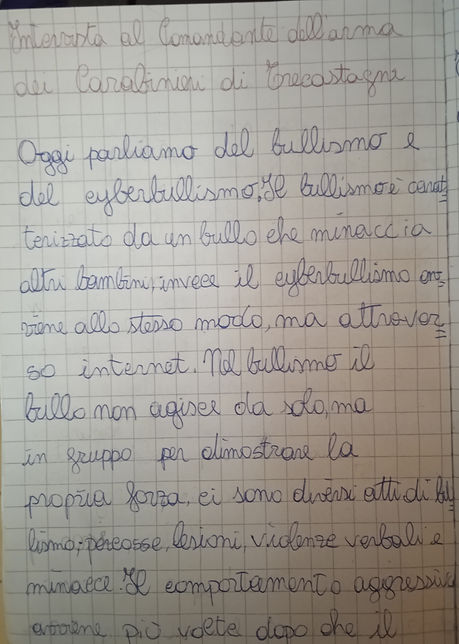 Intervista al Comandante dell'arma
dei Carabinieri di Trecastagni
Oggi parliamo del bullismo e
del cyberbullismo. Il bullismo è carat
terizzato da un bullo che minaccia
altri bambini, invece il cyberbullismo av=
viene allo stesso modo, ma attraver=
so internet. Nel bullismo il
bullo non agisce da solo, ma
in gruppo per dimostrare la
propria forza, ci sono diversi atti di bu
llismo: percosse, lesioni, violenze verbali e
minacce. Il comportamento aggressivo
avviene più volte dopo che il